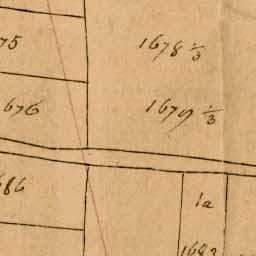 75
1678 1/3
676
1679 1/3
686
1a